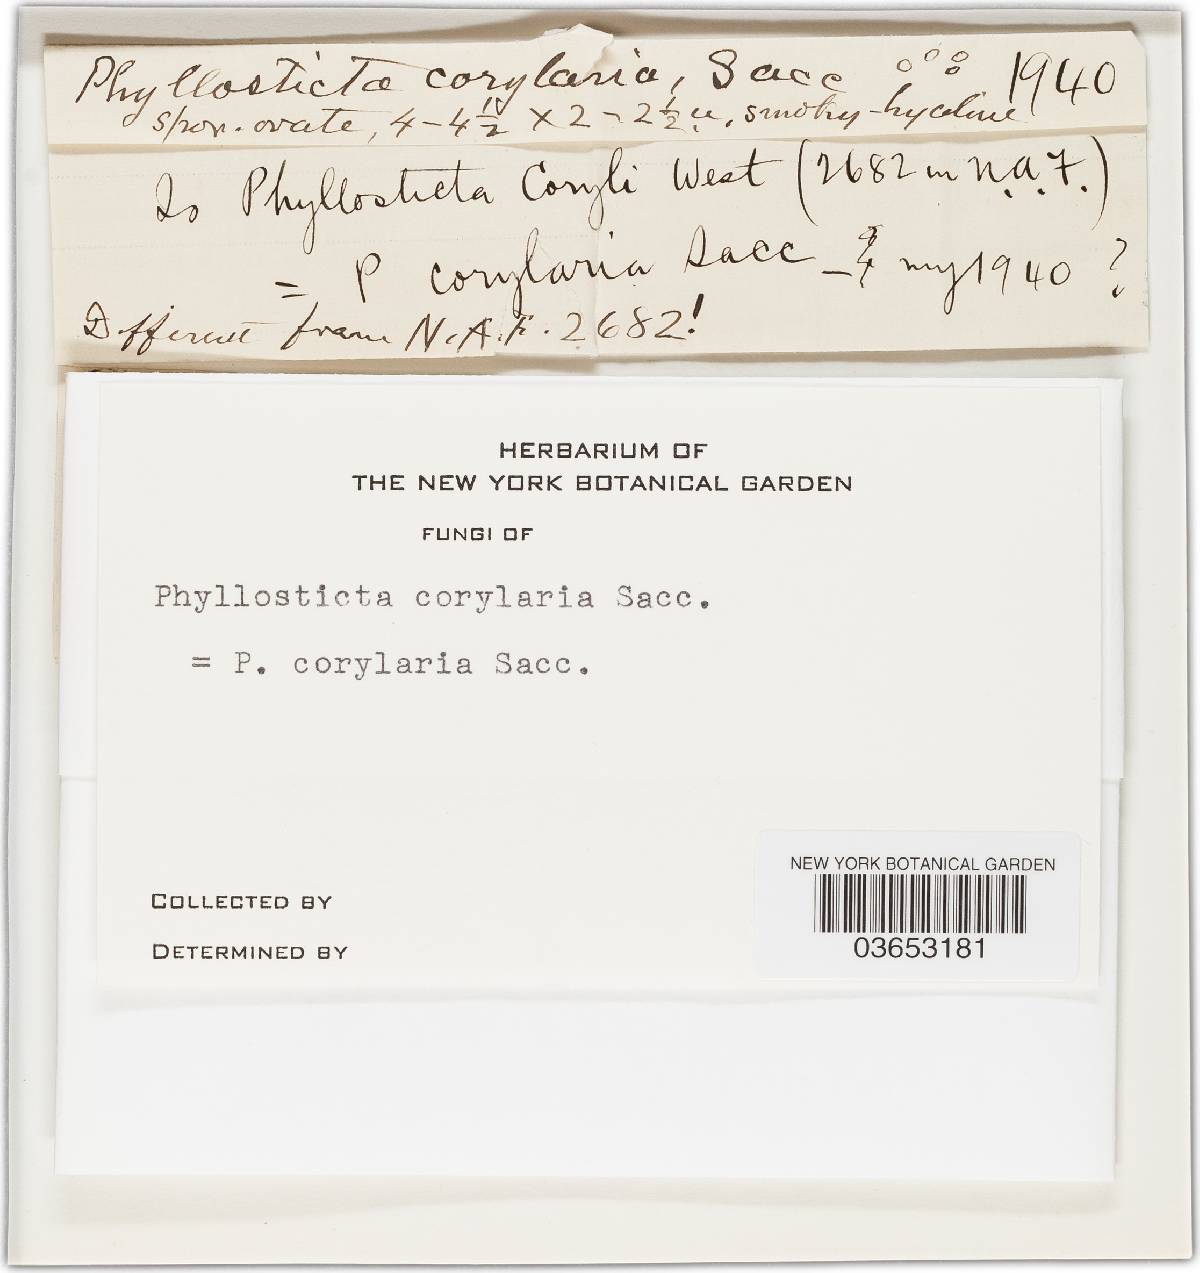 Phyllosticta corylaria, Sacc 1940
spor. ovate, 4-4½ × 2-2½ u, smoky-hyaline
Is Phyllosticta Coryli West (2682 in N.A.F.)
= P corylaria Sacc - & my 1940 ?
Different from N.A.F. 2682!
HERBARIUM OF
THE NEW YORK BOTANICAL GARDEN
FUNGI OF
Phyllosticta corylaria Sacc.
= P. corylaria Sacc.
COLLECTED BY
DETERMINED BY
NEW YORK BOTANICAL GARDEN
03653181